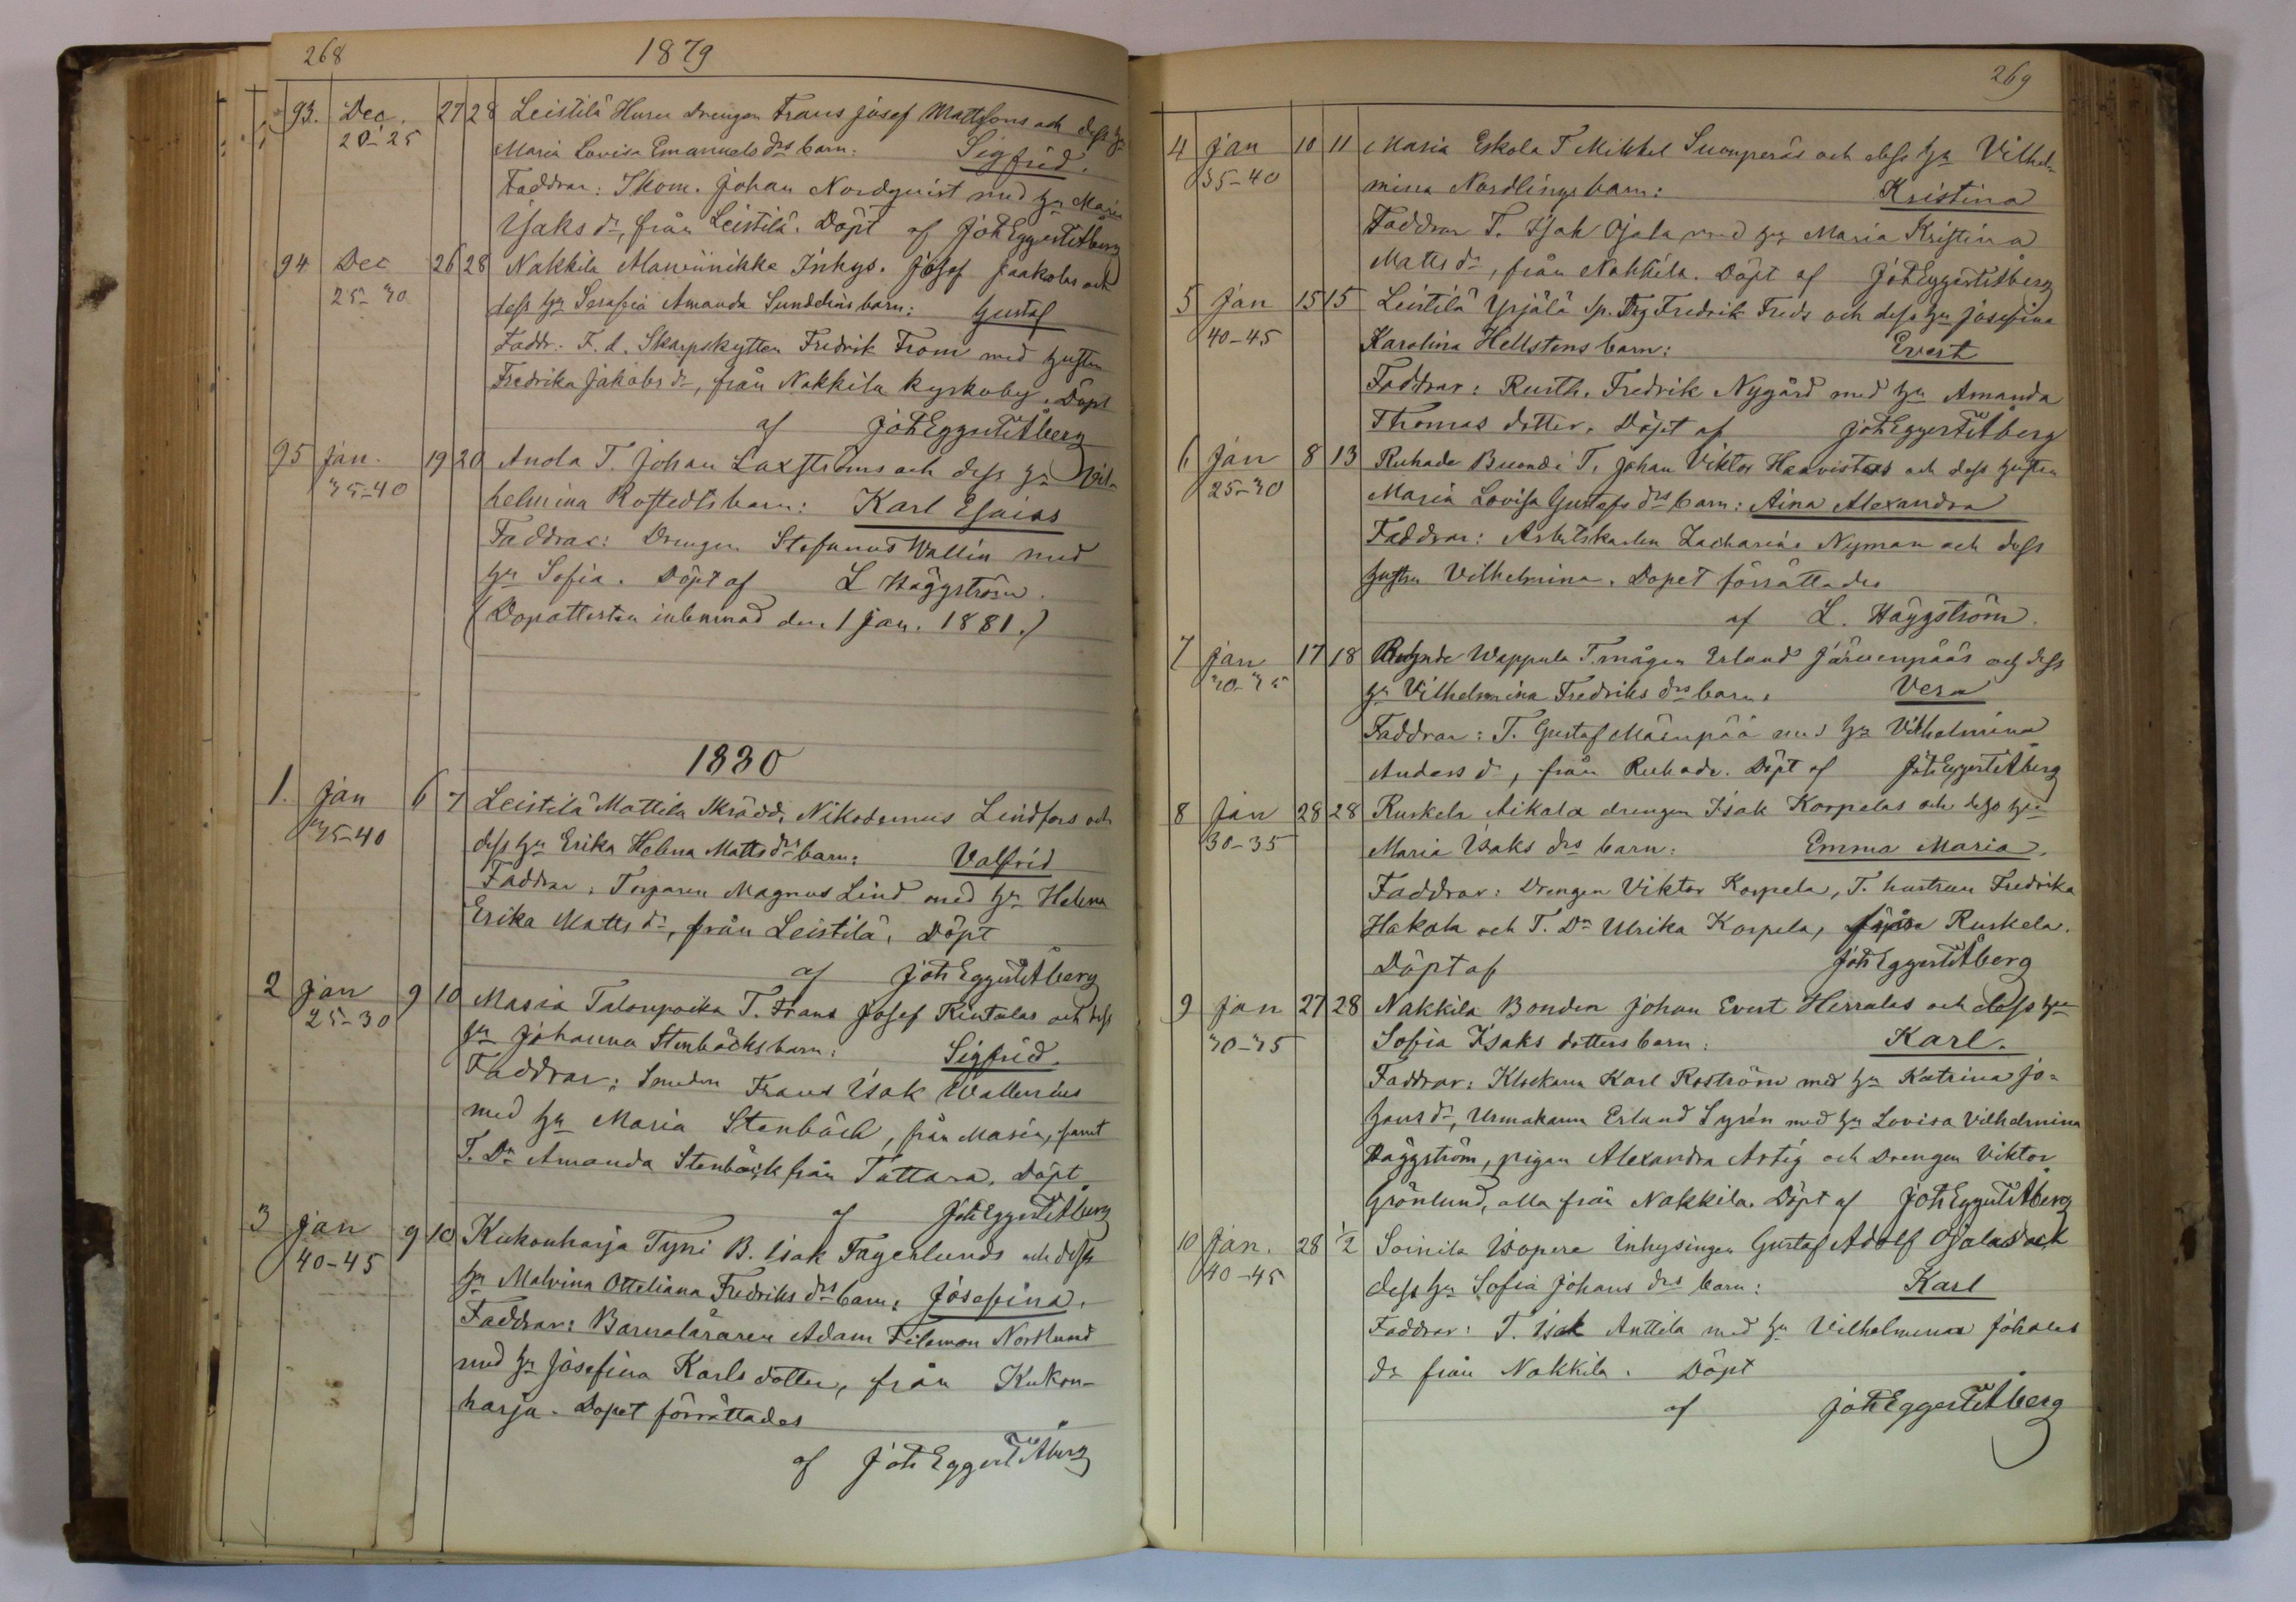 268
1879
93. Dec. 27 28 Leistilä Huru Drengen Frans Josef Mattssons och dess hu
20-25 Maria Lovisa Emanuels drs barn: Sigfrid.
Faddrar: Skom. Johan Nordquist med hu Maria
Isaks dr, från Leistilä. Döpt af Joh Eggert Åberg
94 Dec 26 28 Nakkila Inhys. Josef Jaakolas och
25-30 dess hu Serafia Amanda Sundelins barn: Gustaf
Faddr. F. d. Skarpskytten Fredrik From med hustru
Fredrika Jakobs dr, från Nakkila kyrkoby. Döpt
af Joh Eggert Åberg
95 Jan. 19 20 Anola T. Johan Laxströms och dess hu Vil-
35-40 helmina Rostedts barn: Karl Esaias
Faddrar: Drengen Stefanus Wallin med
hu Sofia. Döpt af L Häggström.
(Dopattesten inlemnad den 1 Jan. 1881.)
1880
1. Jan 6 7 Leistilä Mattila Skrädd. Nikodemus Lindfors och
35-40 dess hu Erika Helena Matts drs barn: Valfrid
Faddrar: Torparen Magnus Lind med hu Helena
Erika Matts dr, från Leistilä. Döpt
af Joh Eggert Åberg
2 Jan 9 10 Masia Talonpoika T. Frans Josef Rintalas och dess
25-30 hu Johanna Stenbäcks barn: Sigfrid.
Faddrar: Smeden Frans Isak Wallenius
med hu Maria Stenbäck, från Masia, samt
T. Dr Amanda Stenbäck från Tattara. Döpt
af Joh Eggert Åberg
3 Jan 9 10 Kukonharja Tyni B. Isak Fagerlunds och dess
40-45 hu Malvina Otteliana Fredriks drs barn: Josefina.
Faddrar: Barnaläraren Adam Filemon Norrlund
med hu Josefina Karls dotter, från Kukon-
harja. Dopet förrättades
af Joh Eggert Åberg
269
4 Jan 10 11 Masia Eskola T Mikkel Suonperäs och dess hu Vilhel-
35-40 mina Nordlings barn: Kristina
Faddrar T. Isak Ojala med hu Maria Kristina
Matts dr, från Nakkila. Döpt af Joh Eggert Åberg
5 Jan 15 15 Leistilä Yrjälä Sp. Trg Fredrik Freds och dess hu Josefina
40-45 Karolina Hellstens barn: Evert
Faddrar: Rusth. Fredrik Nygård med hu Amanda
Thomas dotter. Döpt af Joh Eggert Åberg
6 Jan 8 13 Ruhade Buondi T. Johan Viktor Haavistos och dess hustru
25-30 Maria Lovisa Gustafs drs barn: Aina Alexandra
Faddrar: Arbetskarlen Zacharias Nyman och dess
hustru Vilhelmina. Dopet förrättades
af L. Häggström.
7 Jan 17 18 Wappula T. mågen Erland Järvenpääs och dess
30-35 hu Vilhelmina Fredriks drs barn. Vera
Faddrar: T. Gustaf Mäenpää med hu Vilhelmina
Anders dr, från Ruhade. Döpt af Joh Eggert Åberg
8 Jan 28 28 Ruskela Aikala drengen Isak Korpelas och dess hu
30-35 Maria Isaks drs barn: Emma Maria.
Faddrar: Drengen Viktor Korpela, T. hustrun Fredrika
Hakala och T. Dr Ulrika Korpela, från Ruskela.
Döpt af Joh Eggert Åberg
9 Jan 27 28 Nakkila Bonden Johan Evert Herralas och dess hu
30-35 Sofia Isaks dotters barn: Karl.
Faddrar: Klockaren Karl Roström med hu Katrina Jo-
hans dr, Urmakaren Erland Syrén med hu Lovisa Vilhelmina
Häggström, pigan Alexandra Artig och Drengen Viktor
Grönlund, alla från Nakkila. Döpt af Joh Eggert Åberg
10 Jan. 28 1/2 Soinila Wopere Inhysingen Gustaf Adolf Ojalas och
40-45 dess hu Sofia Johans drs barn: Karl
Faddrar: T. Isak Anttila med hu Vilhelmina Johans
dr från Nakkila. Döpt
af Joh Eggert Åberg